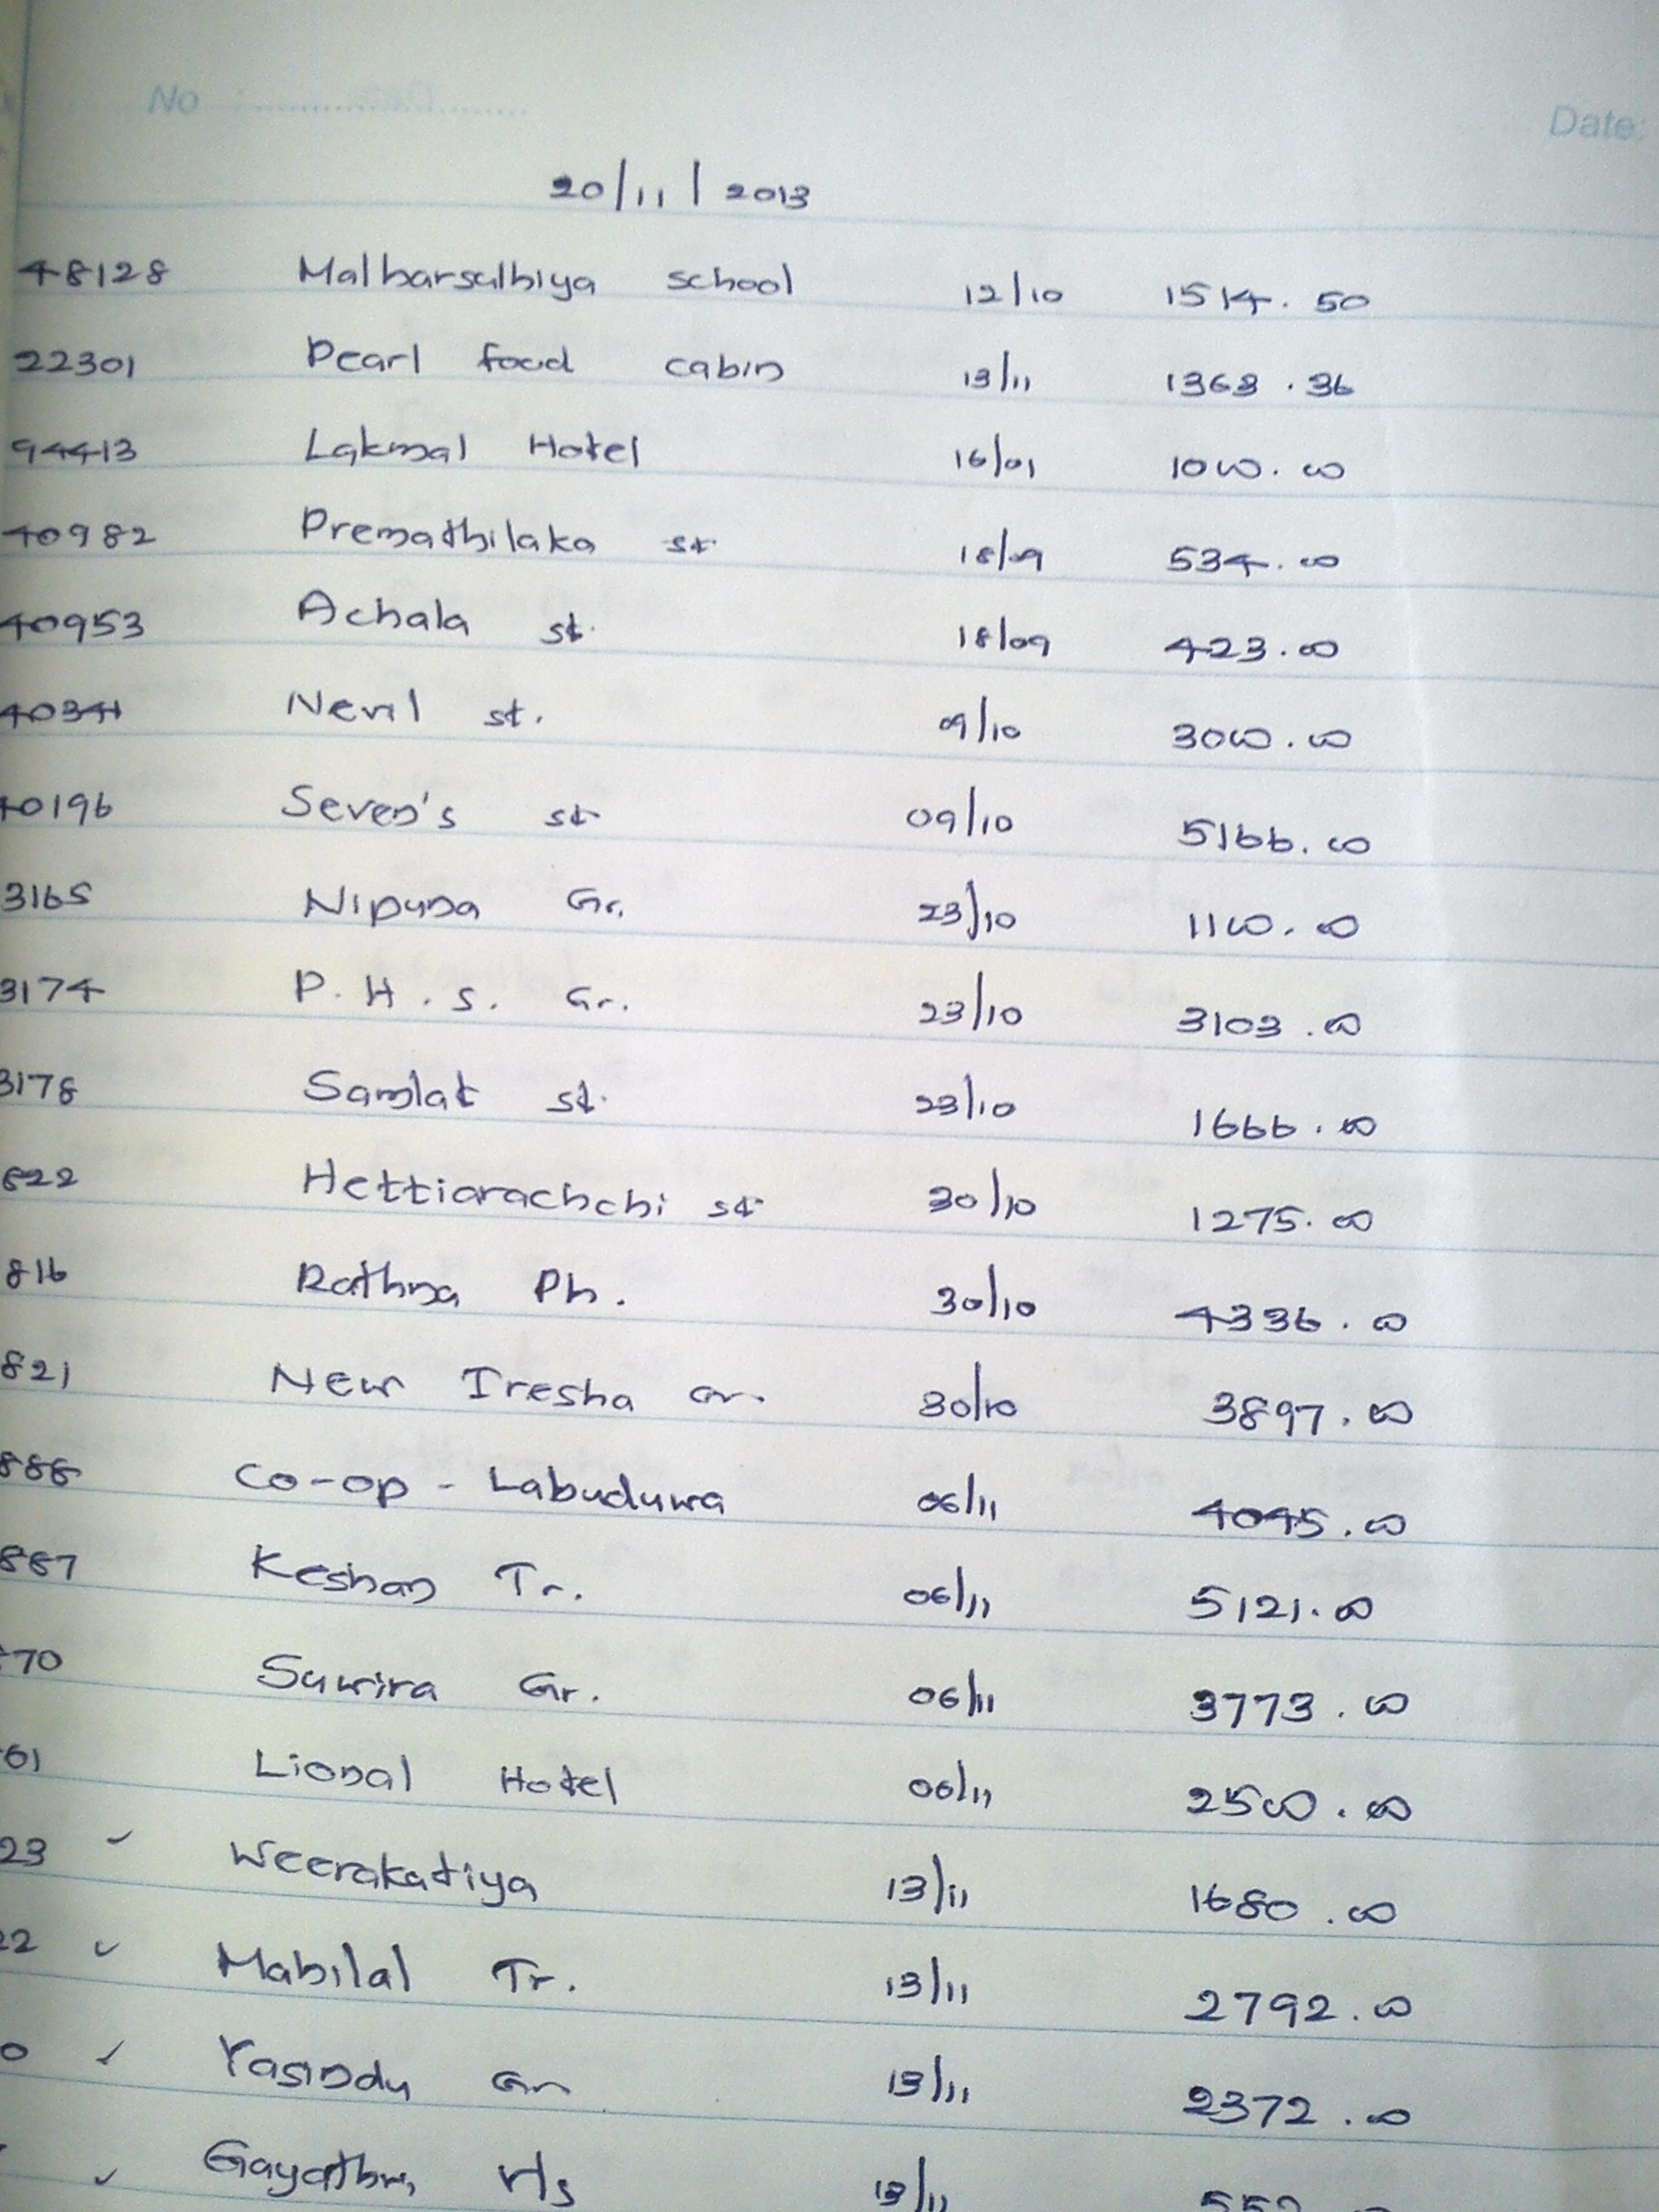 No : ....................
Date:
20/11/2013
48128 Malharsulhiya school 12/10 1514.50
22301 Pearl food cabin 13/11 1363.36
94413 Lakmal Hotel 16/01 1000.00
40982 Premathilaka st. 18/09 534.00
40953 Achala st. 18/09 423.00
40341 Nevil st. 09/10 3000.00
40196 Seven's st 09/10 5166.00
3165 Nipuna Gr. 23/10 1100.00
3174 P.H.S. Gr. 23/10 3103.00
3178 Samlat st. 23/10 1666.00
822 Hettiarachchi st 30/10 1275.00
816 Rathna Ph. 30/10 4336.00
821 New Iresha Gr. 30/10 3897.00
888 Co-op - Labuduwa 06/11 4045.00
887 Keshan Tr. 06/11 5121.00
70 Suwira Gr. 06/11 3773.00
61 Lional Hotel 06/11 2500.00
23 ✓ Weerakatiya 13/11 1680.00
22 ✓ Mabilal Tr. 13/11 2792.00
0 ✓ Yasindu Gr 13/11 2372.00
✓ Gayathri 13/11 552